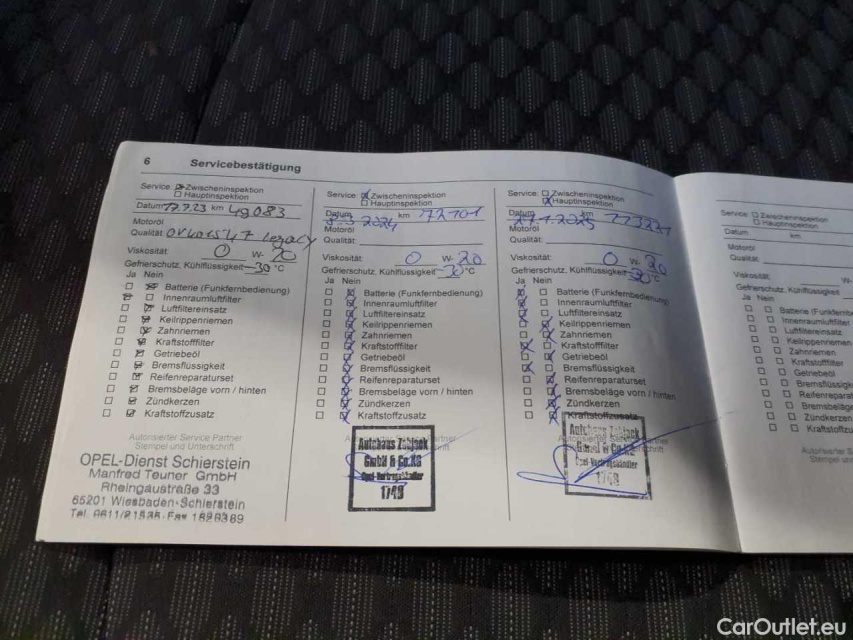 6 Servicebestätigung
Service: Zwischeninspektion
Hauptinspektion
Datum 17.7.23 km 49083
Motoröl
Qualität: OV0401547 legacy
Viskosität: 0 W- 20
Gefrierschutz, Kühlflüssigkeit -30 °C
Ja Nein
Batterie (Funkfernbedienung)
Innenraumluftfilter
Luftfiltereinsatz
Keilrippenriemen
Zahnriemen
Kraftstofffilter
Getriebeöl
Bremsflüssigkeit
Reifenreparaturset
Bremsbeläge vorn / hinten
Zündkerzen
Kraftstoffzusatz
Autorisierter Service Partner
Stempel und Unterschrift
OPEL-Dienst Schierstein
Manfred Teuner GmbH
Rheingaustraße 33
65201 Wiesbaden-Schierstein
Tel. 0611/21535
Service: Zwischeninspektion
Hauptinspektion
Datum 2024 km 72701
Motoröl
Qualität:
Viskosität: 0 W- 20
Gefrierschutz, Kühlflüssigkeit -30 °C
Ja Nein
Batterie (Funkfernbedienung)
Innenraumluftfilter
Luftfiltereinsatz
Keilrippenriemen
Zahnriemen
Kraftstofffilter
Getriebeöl
Bremsflüssigkeit
Reifenreparaturset
Bremsbeläge vorn / hinten
Zündkerzen
Kraftstoffzusatz
Autohaus
GmbH & Co.KG
Opel-Vertragshändler
1749
Service: Zwischeninspektion
Hauptinspektion
Datum 2025 km
Motoröl
Qualität:
Viskosität: 0 W- 20
Gefrierschutz, Kühlflüssigkeit -30 °C
Ja Nein
Batterie (Funkfernbedienung)
Innenraumluftfilter
Luftfiltereinsatz
Keilrippenriemen
Zahnriemen
Kraftstofffilter
Getriebeöl
Bremsflüssigkeit
Reifenreparaturset
Bremsbeläge vorn / hinten
Zündkerzen
Kraftstoffzusatz
Autohaus
GmbH & Co.KG
Opel-Vertragshändler
1749
Service: Zwischeninspektion
Hauptinspektion
Datum km
Motoröl
Qualität:
Viskosität: W-
Gefrierschutz, Kühlflüssigkeit
Ja Nein
Batterie (Funkfernbe
Innenraumluftfilter
Luftfiltereinsatz
Keilrippenriemen
Zahnriemen
Kraftstofffilter
Getriebeöl
Bremsflüssigk
Reifenrepara
Bremsbeläge
Zündkerzen
Kraftstoffzu
Autorisierter S
Stempel un
CarOutlet.eu